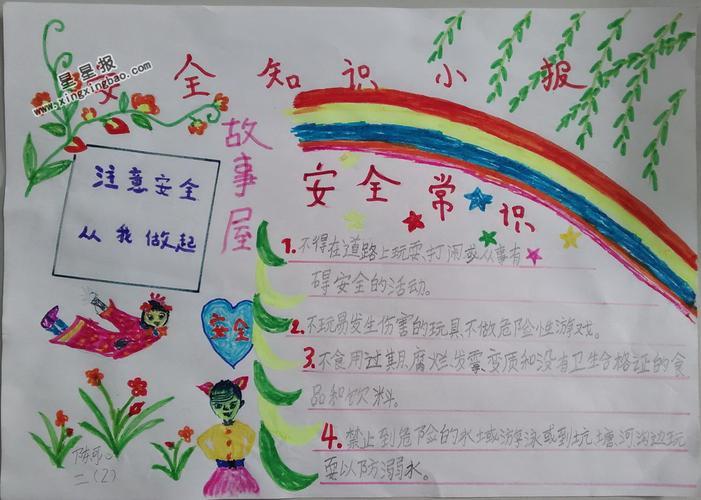 星星报
www.xingxingbao.com
安全知识小报
故事屋
注意安全
从我做起
安全常识
1.不得在道路上玩耍、打闹或从事有
碍安全的活动。
2.不玩易发生伤害的玩具、不做危险性游戏。
3.不食用过期、腐烂、发霉、变质和没有卫生合格证的食
品和饮料。
4.禁止到危险的水域游泳或到坑、塘、河沟边玩
耍以防溺水。
安全
二(2)